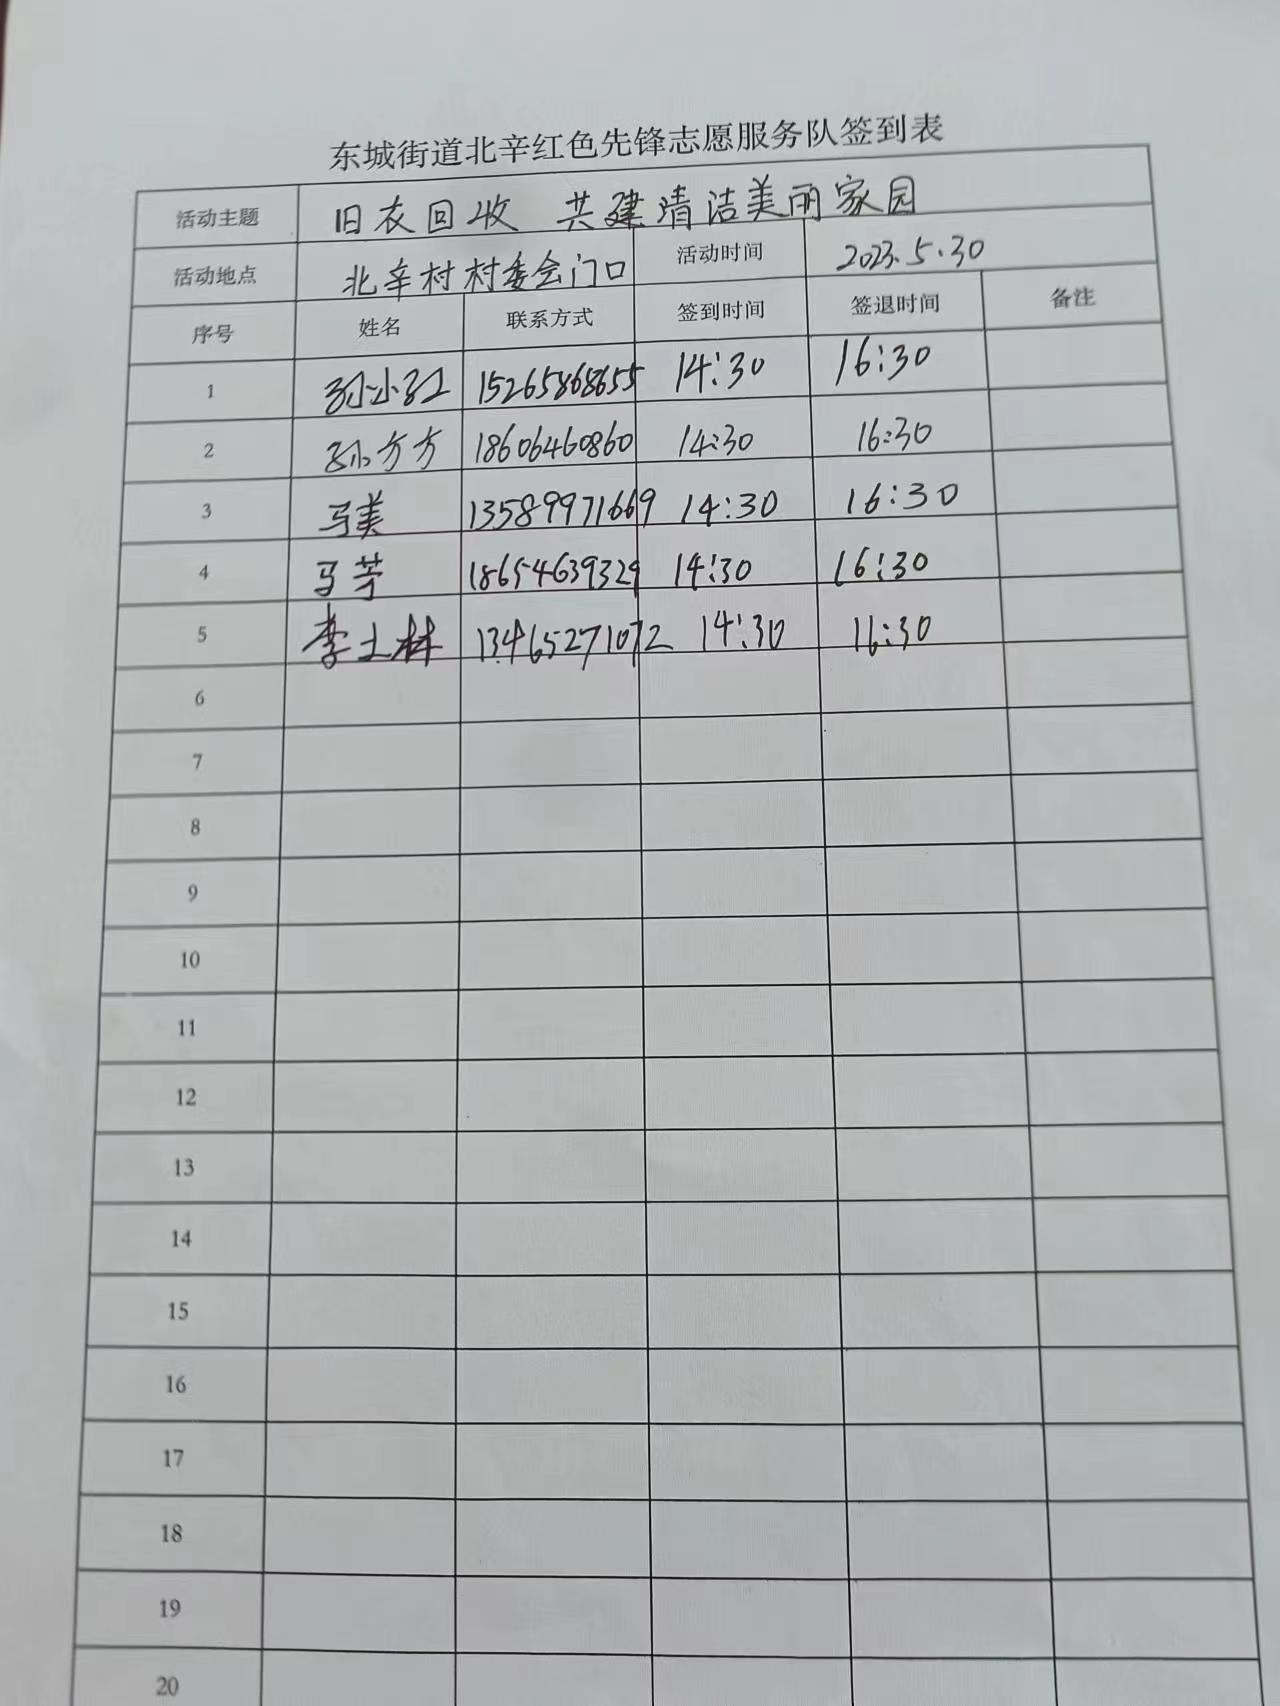 东城街道北辛红色先锋志愿服务队签到表
活动主题 旧衣回收 共建清洁美丽家园
活动地点 北辛村村委会门口 活动时间 2023.5.30
序号 姓名 联系方式 签到时间 签退时间 备注
1 孙小红 15265868655 14:30 16:30
2 孙方方 18606460860 14:30 16:30
3 马美 13589971669 14:30 16:30
4 马芳 18654639329 14:30 16:30
5 李士林 13465271072 14:30 16:30
6
7
8
9
10
11
12
13
14
15
16
17
18
19
20